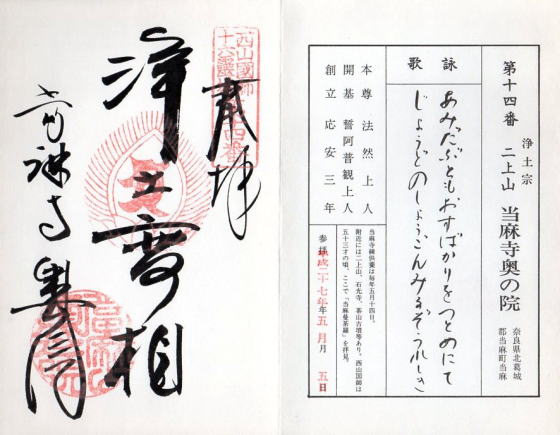 第十四番
浄土宗
二上山 当麻寺奥の院
奈良県北葛城
郡当麻町当麻
詠歌
あみだぶともおすばかりをつとめにて
じょうどのしょうごんみるぞうれしき
本尊 法然上人
開基 誓阿普観上人
創立 応安三年
当麻寺練供養は毎年五月十四日。
附近には二上山、石光寺、茶山古墳等あり。西山国師は
五十三才の頃、ここで「当麻曼荼羅」を拝見。
参拝 平成二十七年五月 五日
西山國師
十六霊場第十四番
奉拝
浄土変相
当麻寺奥之院